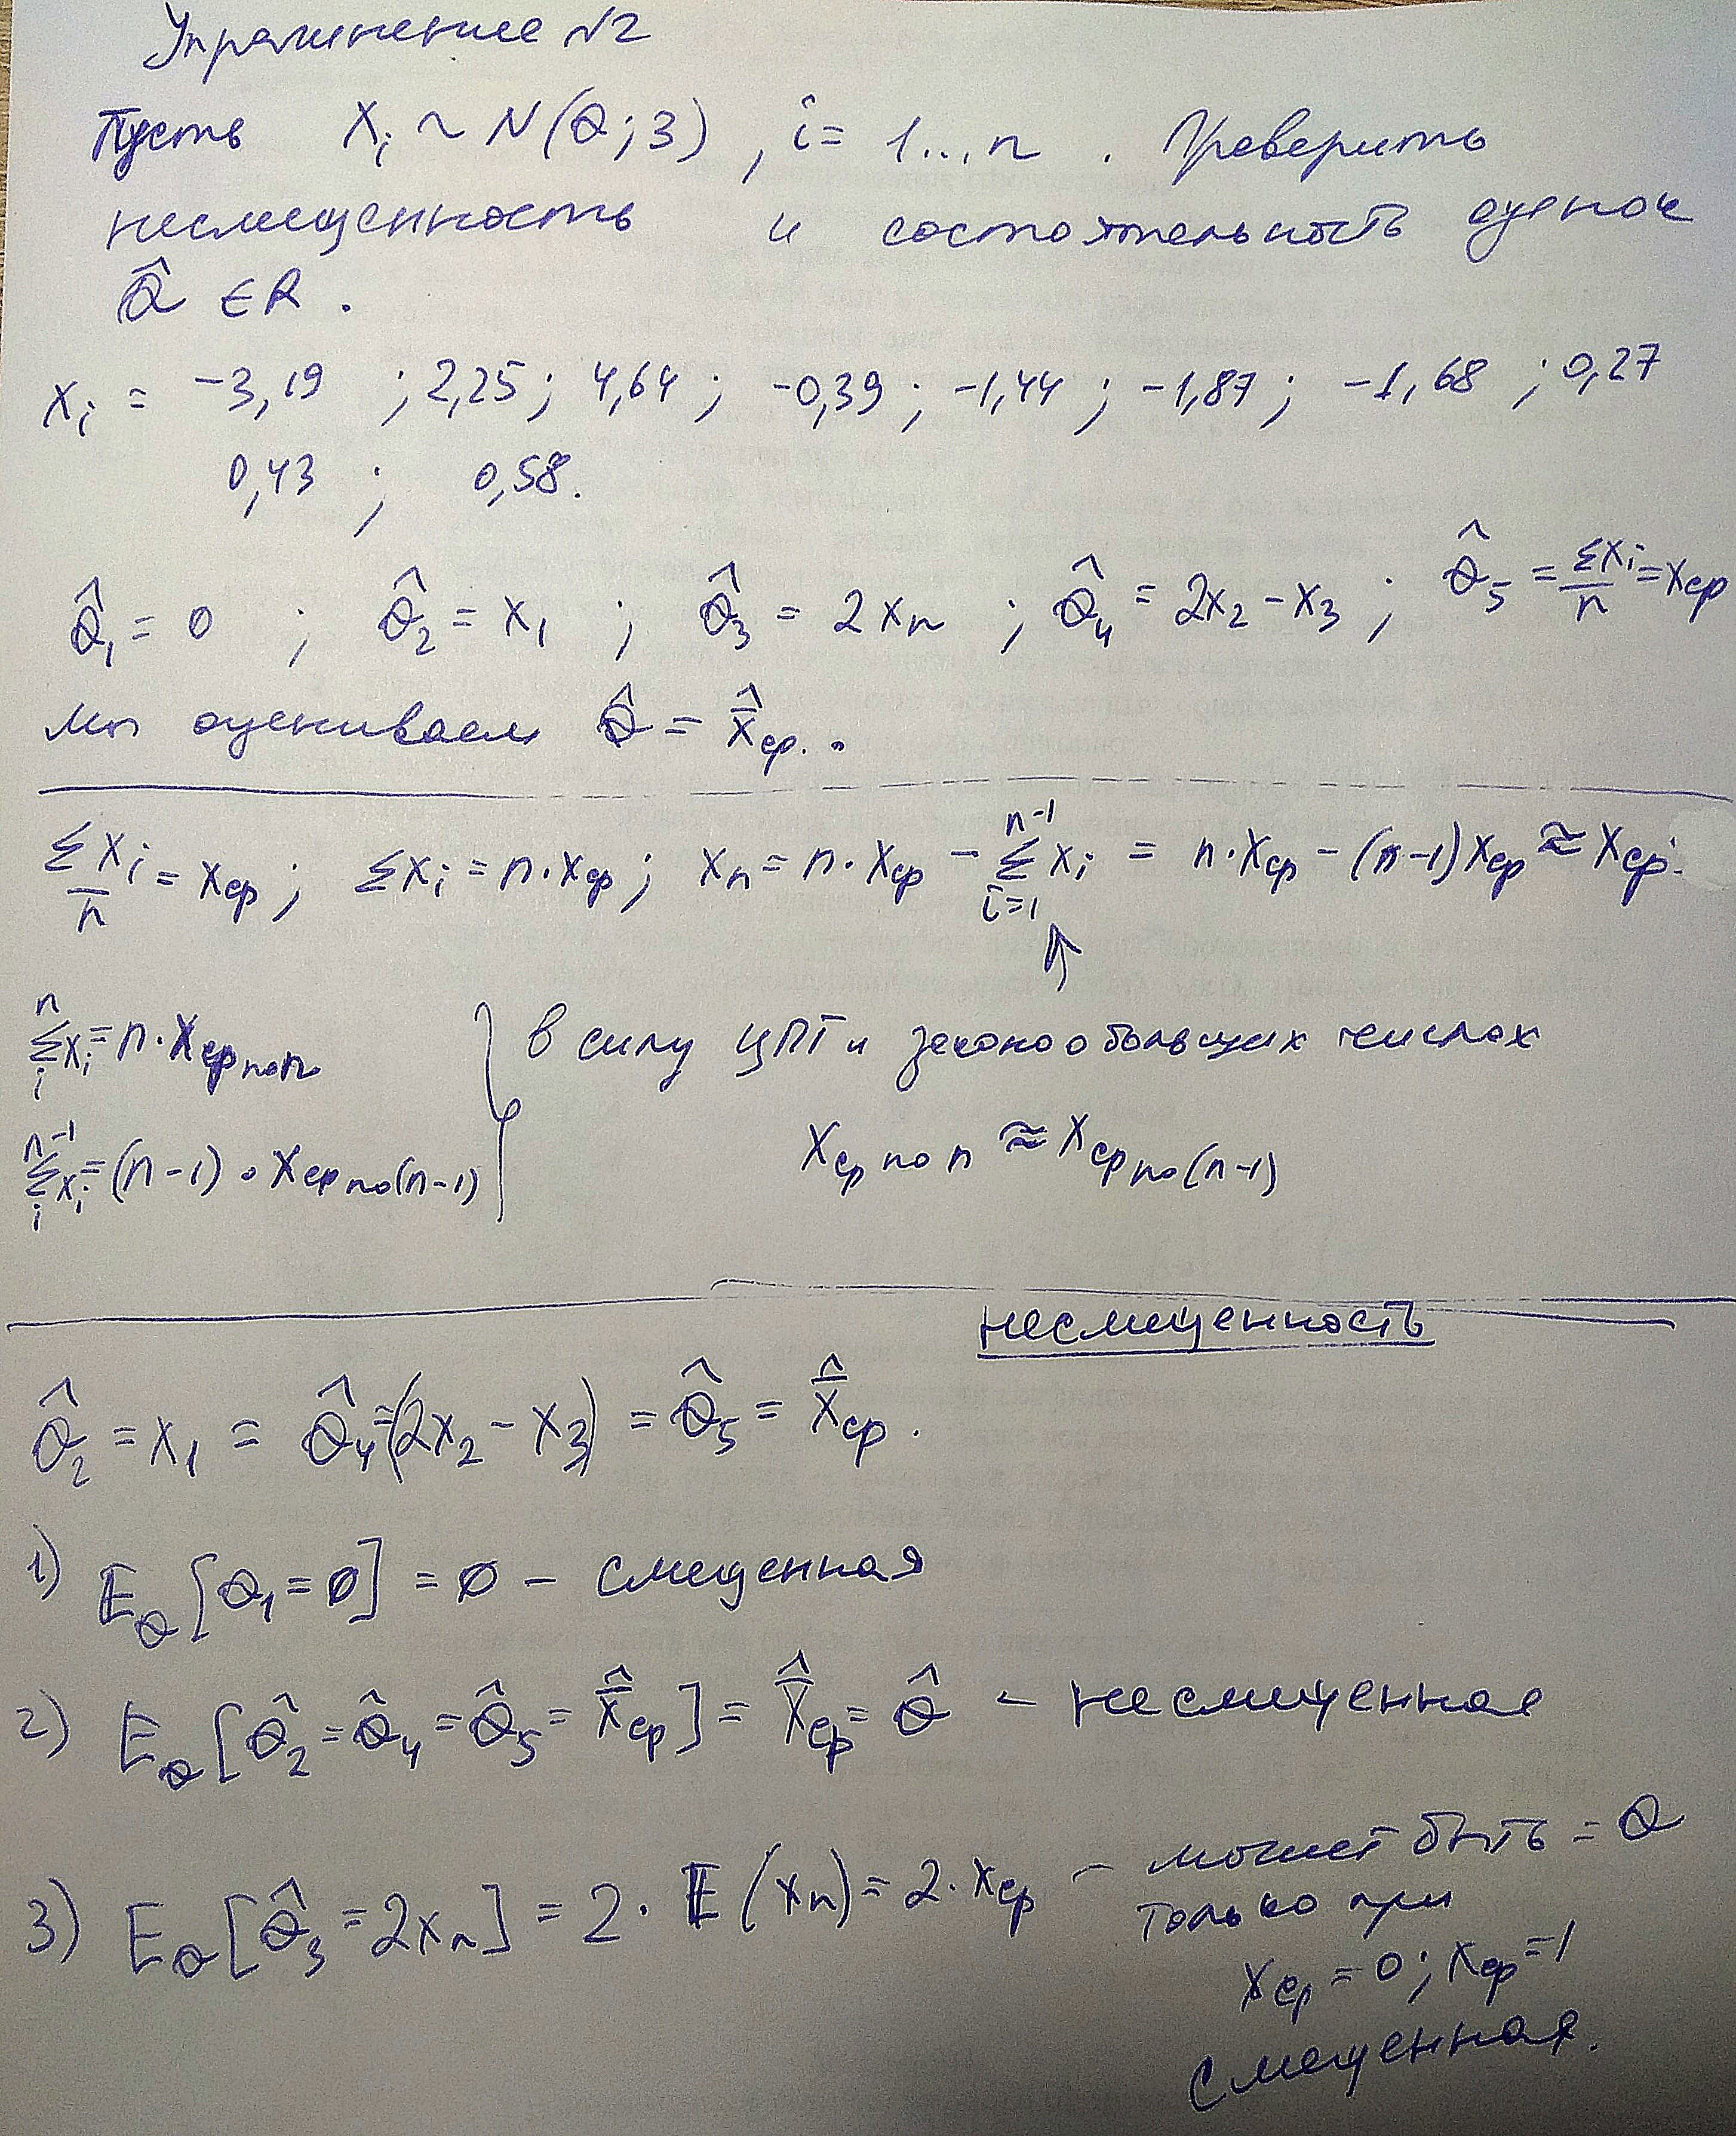 Упражнение №2
Пусть X_i ~ N(θ; 3), i = 1...n. Проверить
несмещенность и состоятельность оценок
θ̂ ∈ R.
x_i = -3,19 ; 2,25; 4,64; -0,39; -1,44; -1,87; -1,68; 0,27
0,43 ; 0,58.
θ̂_1 = 0 ; θ̂_2 = x_1 ; θ̂_3 = 2x_n ; θ̂_4 = 2x_2 - x_3 ; θ̂_5 = Σx_i/n = x_ср
мы оцениваем θ̂ = x̄̂_ср.
Σx_i/n = x_ср ; Σx_i = n·x_ср; x_n = n·x_ср - Σ_{i=1}^{n-1} x_i = n·x_ср - (n-1)x_ср ≈ x_ср.
↑
Σ_i^n x_i = n·x_ср по n } в силу ЦПТ и закона о больших числах
Σ_i^{n-1} x_i = (n-1)·x_ср по (n-1) x_ср по n ≈ x_ср по (n-1)
несмещенность
θ̂_2 = x_1 = θ̂_4 = (2x_2 - x_3) = θ̂_5 = x̄̂_ср.
1) E_θ[θ_1 = 0] = 0 - смещенная
2) E_θ[θ̂_2 = θ̂_4 = θ̂_5 = x̄̂_ср] = x̄̂_ср = θ̂ - несмещенная
3) E_θ[θ̂_3 = 2x_n] = 2·E(x_n) = 2·x_ср - может быть = θ
только при
x_ср = 0; x_ср = 1
смещенная.